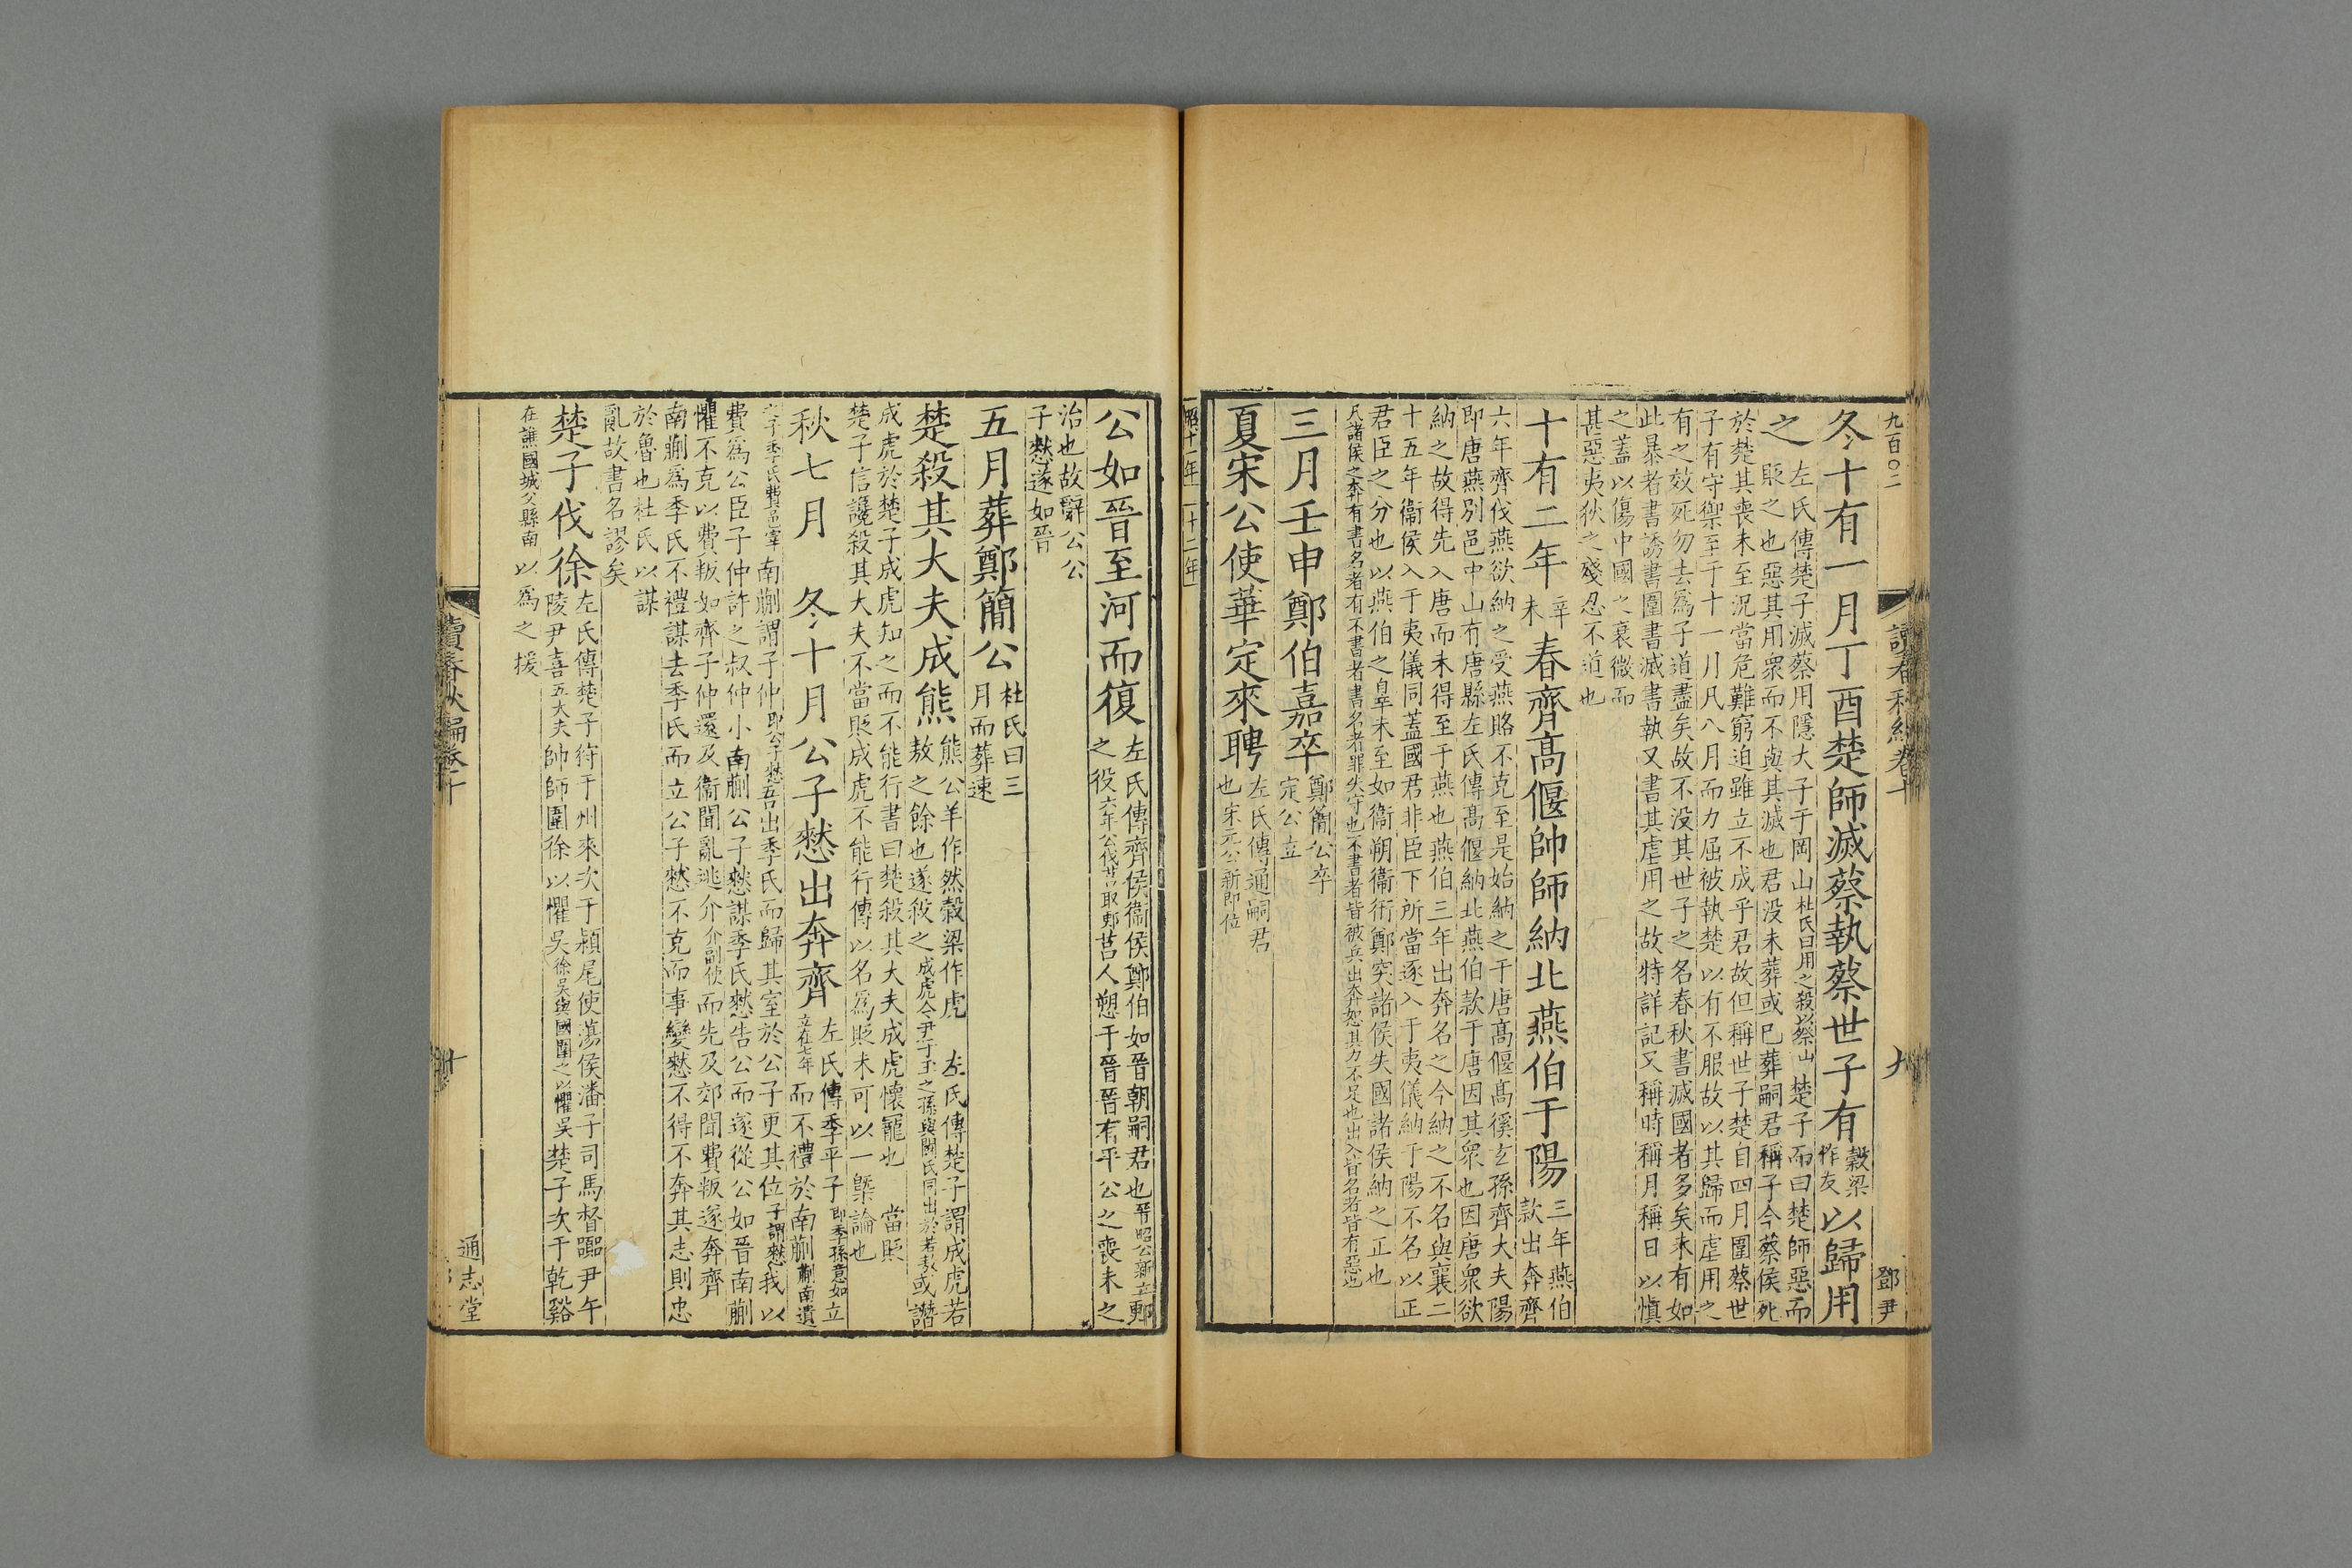 九百〇二
讀春秋編卷十
九
鄧尹
冬十有一月丁酉楚師滅蔡執蔡世子有穀梁作友以歸用
之左氏傳楚子滅蔡用隱大子于岡山杜氏曰用之殺以祭山楚子而曰楚師惡而
貶之也惡其用衆而不與其滅也君没未葬或已葬嗣君稱子今蔡侯死
於楚其喪未至況當危難窮迫雖立不成乎君故但稱世子楚自四月圍蔡世
子有守禦至于十一月凡八月而力屈被執楚以有不服故以其歸而虐用之
有之效死勿去為子道盡矣故不没其世子之名春秋書滅國者多矣未有如
此暴者書誘書圍書滅書執又書其虐用之故特詳記又稱時稱月稱日以愼
之蓋以傷中國之衰微而
甚惡夷狄之殘忍不道也
十有二年辛未春齊高偃帥師納北燕伯于陽三年燕伯款出奔齊
六年齊伐燕欲納之受燕賂不克至是始納之于唐高偃高徯玄孫齊大夫陽
即唐燕別邑中山有唐縣左氏傳高偃納北燕伯款于唐因其衆也因唐衆欲
納之故得先入唐而未得至于燕也燕伯三年出奔名之今納之不名與襄二
十五年衞侯入于夷儀同蓋國君非臣下所當逐入于夷儀納于陽不名以正
君臣之分也以燕伯之辠未至如衞朔衞衎鄭突諸侯失國諸侯納之正也
凡諸侯之奔有書名者有不書者書名者罪失守也不書者皆被兵出奔恕其力不足也出入皆名者皆有惡也
三月壬申鄭伯嘉卒鄭簡公卒定公立
夏宋公使華定來聘左氏傳通嗣君也宋元公新即位
昭十一年 十二年
公如晉至河而復左氏傳齊侯衞侯鄭伯如晉朝嗣君也晉昭公新立郠
之役六年公伐莒取郠莒人愬于晉晉有平公之喪未之
治也故辭公公
子憖遂如晉
五月葬鄭簡公杜氏曰三月而葬速
楚殺其大夫成熊熊公羊作然穀梁作虎 左氏傳楚子謂成虎若
敖之餘也遂殺之成虎令尹子玉之孫與鬭氏同出於若敖或譖
成虎於楚子成虎知之而不能行書曰楚殺其大夫成虎懷寵也 當貶
楚子信讒殺其大夫不當貶成虎不能行傳以名為貶未可以一槩論也
秋七月 冬十月公子憖出奔齊左氏傳季平子即季孫意如立
立在七年而不禮於南蒯蒯南遺
之子季氏費邑宰南蒯謂子仲即公子憖吾出季氏而歸其室於公子更其位子謂憖我以
費為公臣子仲許之叔仲小南蒯公子憖謀季氏憖告公而遂從公如晉南蒯
懼不克以費叛如齊子仲還及衞聞亂逃介介副使而先及郊聞費叛遂奔齊
南蒯為季氏不禮謀去季氏而立公子憖不克而事變憖不得不奔其志則忠
於魯也杜氏以謀
亂故書名謬矣
楚子伐徐左氏傳楚子狩于州來次于潁尾使蕩侯潘子司馬督嚻尹午
陵尹喜五大夫帥師圍徐以懼吳徐吳與國圍之以懼吳楚子次于乾谿
在譙國城父縣南以為之援
讀春秋編卷十
十
通志堂